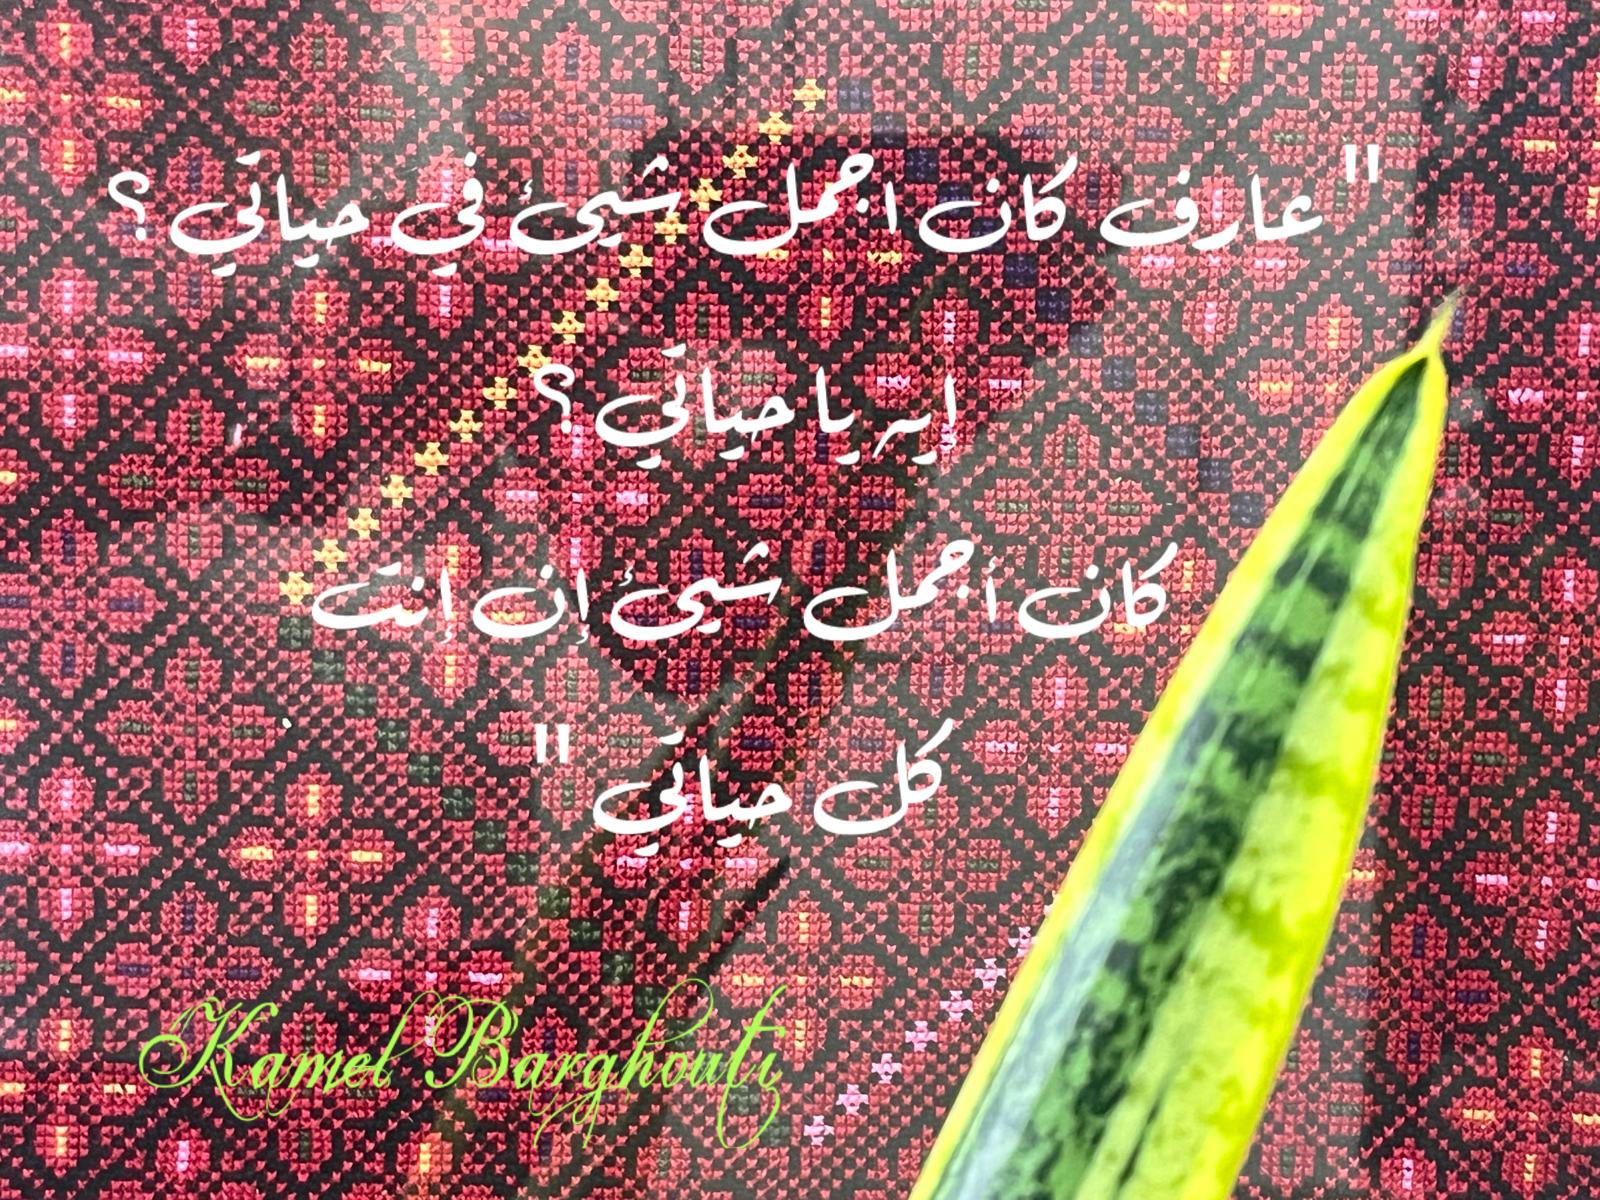 " عارف كان اجمل شيئ في حياتي ؟
إيه يا حياتي ؟
كان أجمل شيئ إن إنت
كل حياتي "
Kamel Barghouti